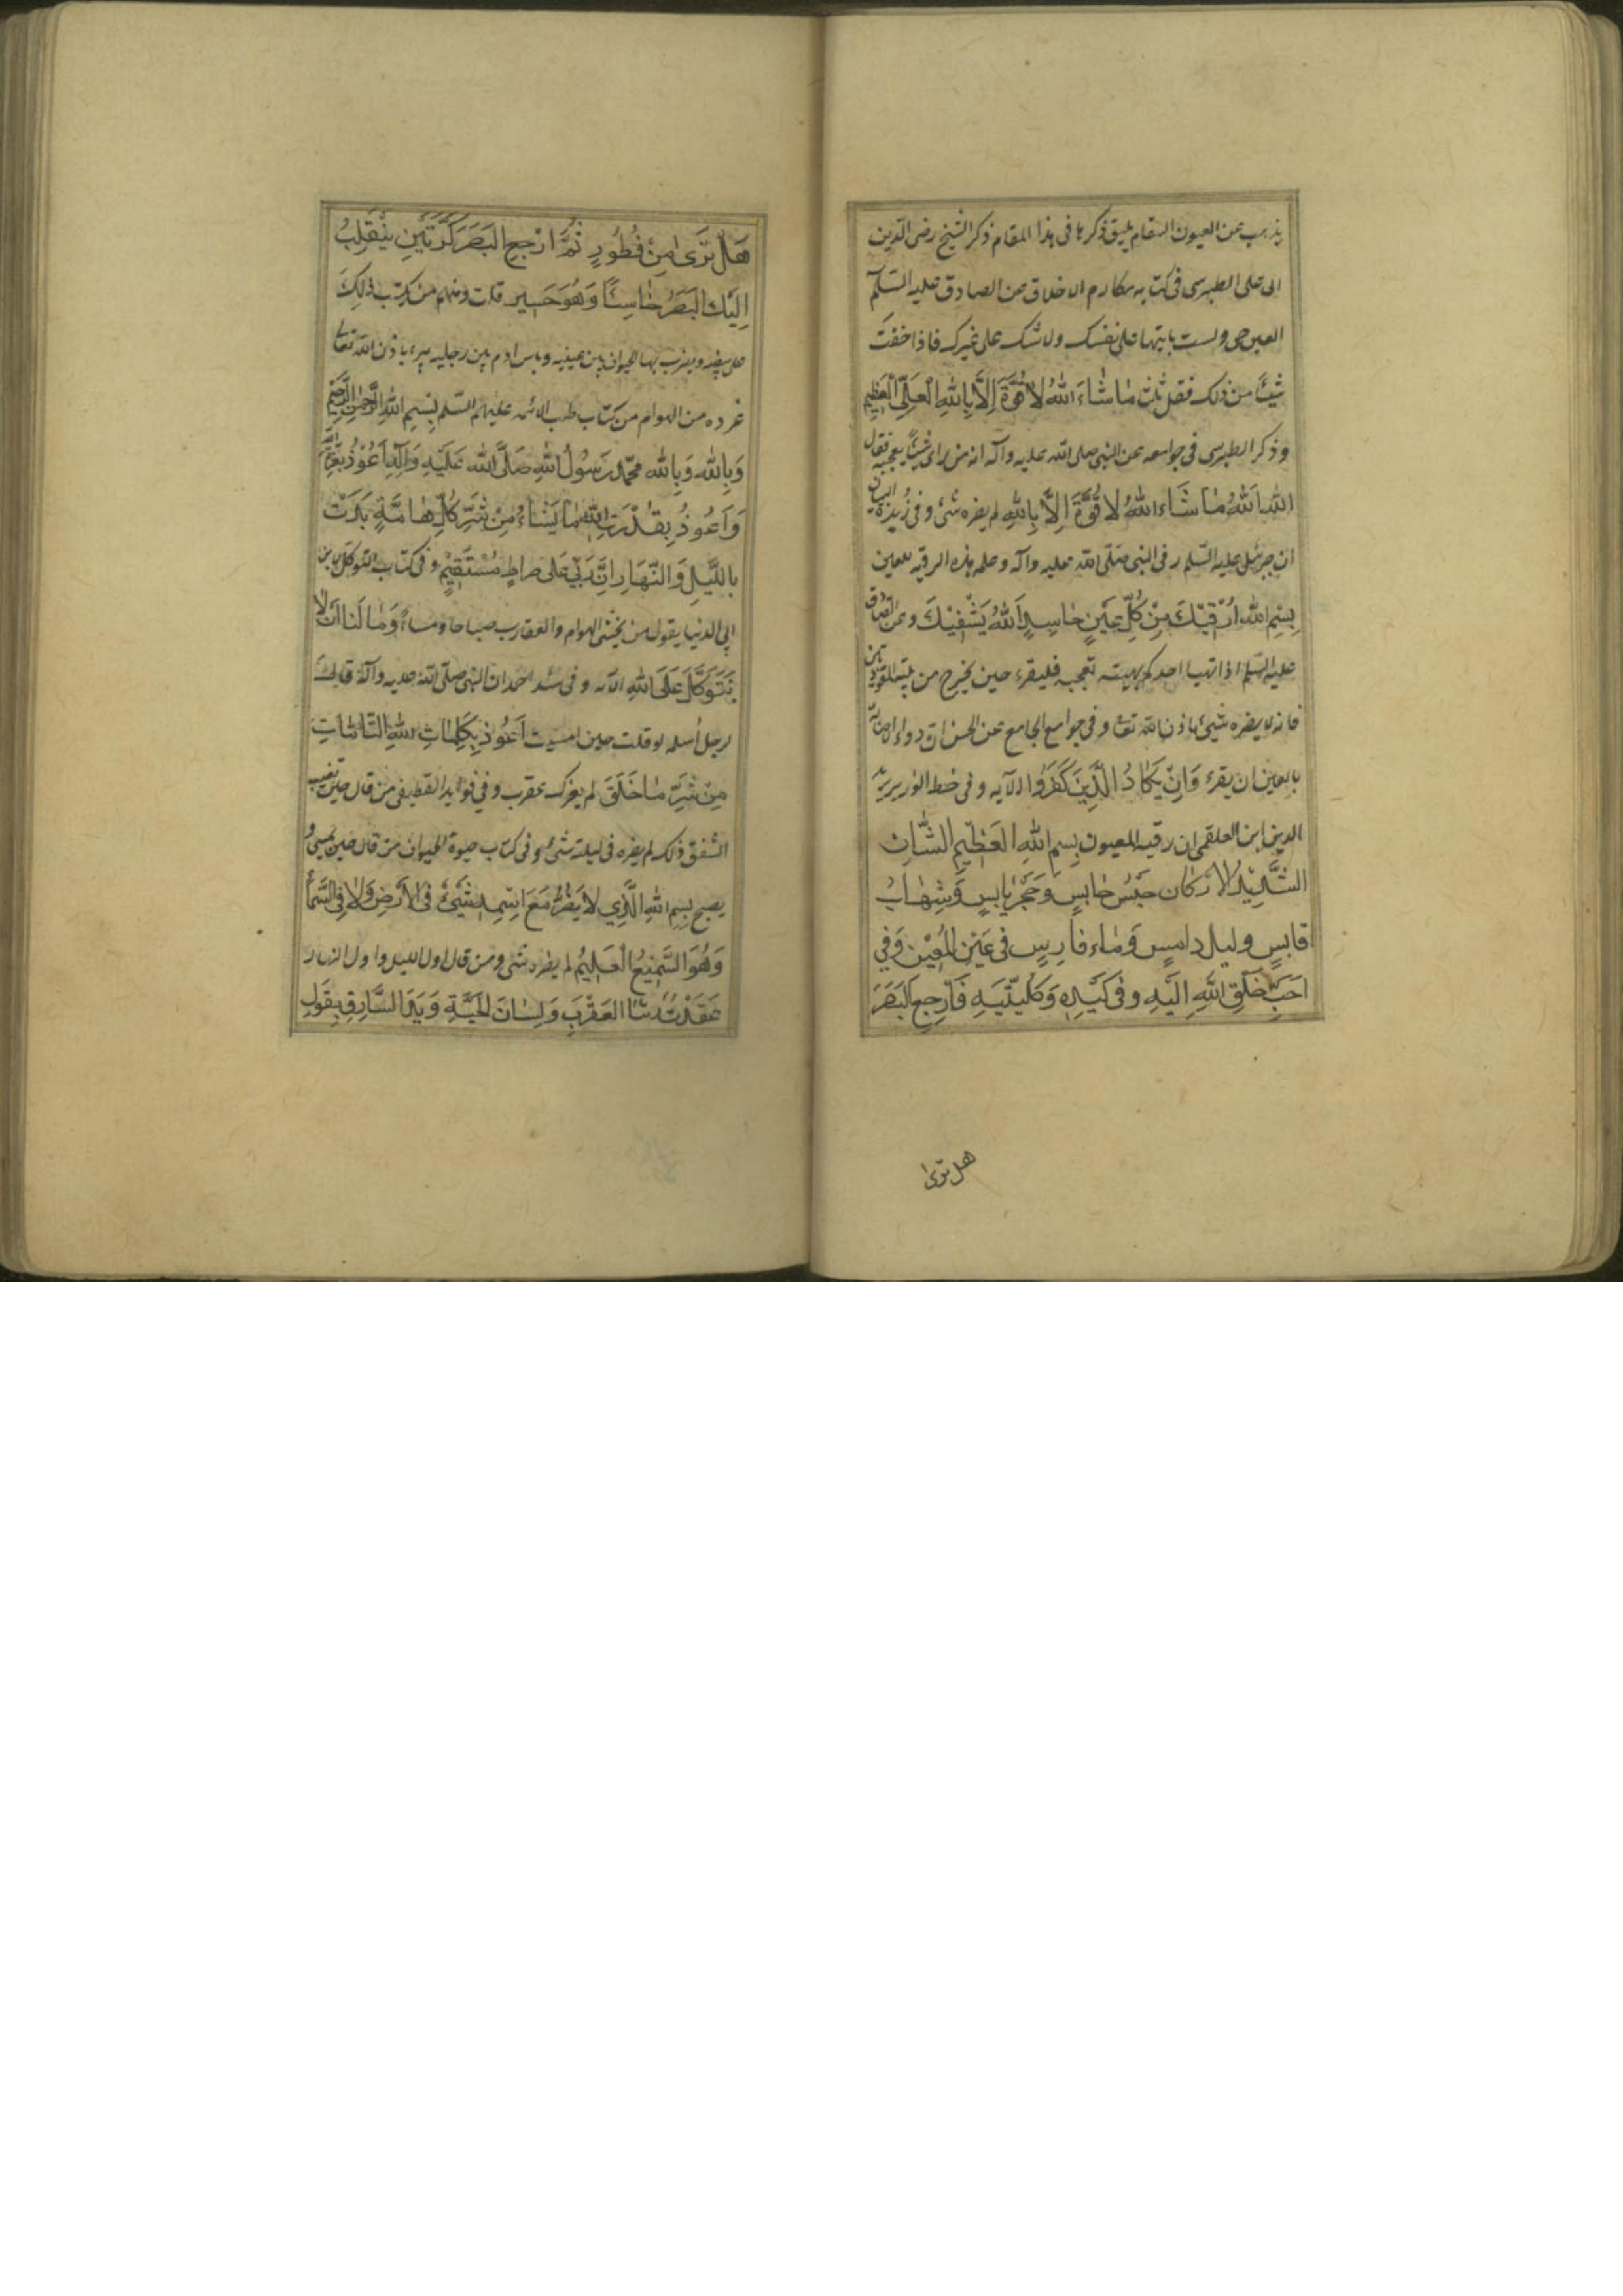 يذهب عن العيون السقام يليق ذكرها فى هذا المقام ذكر الشيخ رضى الدين
ابى على الطبرسى فى كتابه مكارم الاخلاق عن الصادق عليه السلم
العين حق ولست بآمنها على نفسك ولا منك على غيرك فاذا خفت
شيئا من ذلك فقل ثلث مَا شَاءَ اللهُ لَا قُوَّةَ اِلَّا بِاللهِ الْعَلِىِّ الْعَظِيمِ
وذكر الطبرسى فى جوامعه عن النبى صلى الله عليه وآله انه من راى شيئا يعجبه فقال
اللهُ اللهُ مَا شَاءَ اللهُ لَا قُوَّةَ اِلَّا بِاللهِ لم يضره شئ وفى زبدة البيان
ان جبرئيل عليه السلم رقى النبى صلى الله عليه وآله وعلمه هذه الرقيه للعين
بِسْمِ اللهِ اَرْقِيْكَ مِنْ كُلِّ عَيْنٍ حَاسِدٍ اَللهُ يَشْفِيْكَ وعن الصادق
عليه السلم اذا تهيا احدكم بهيئة تعجبه فليقرء حين يخرج من بيته المعوذتين
فانه لا يضره شئ باذن الله تعا وفى جوامع الجامع عن الحسن ان دواء الاصابة
بالعين ان يقرء وَاِنْ يَكَادُ الَّذِينَ كَفَرُوا الآيه وفى خط الوزير مؤيد
الدين ابن العلقمى ان رقية المعيون بِسمِ اللهِ العَظِيمِ الشَّانِ
الشَّدِيْدِ الْاَرْكَان حَبْسٌ حَابِسٍ وَحَجَرٌ يَابِسٍ وَشِهَابُ
قَابِسٍ وليل دامسٍ وَمَاء فارِسٍ فى عَيْنِ الْمُعِيْنِ وَفِي
اَحَبِّ خَلْقِ اللهِ اِلَيْهِ وفى كَبِدِهِ وَكُلْيَتَيْهِ فَارْجِعِ الْبَصَرَ
هل ترى
هَلْ تَرَى مِنْ فُطُورٍ ثُمَّ ارْجِعِ الْبَصَرَ كَرَّتَيْنِ يَنْقَلِبْ
اِلَيْكَ الْبَصَرُ خَاسِئًا وَهُوَ حَسِير قلت ومنهم من يكتب ذلك
على بيضه ويضرب بها الحيوان بين عينيه وبابن ادم بين رجليه يبرء باذن الله تعا
غرده من الهوام من كتاب طب الائمه عليهم السلم بِسْمِ اللهِ الرَّحْمٰنِ الرَّحِيْمِ
وَبِاللهِ وَبِالله محمد رَسُولُ اللهِ صَلَّى الله عَلَيْهِ وَآلِهِ اَعُوْذُ بِعِزَّةِ الله
وَاَعُوذُ بِقُدْرَتِ الله مَا يَشَاءُ مِنْ شَرِّ كُلِّ هَامَّةٍ تَدِبُّ
بِاللَّيْلِ وَالنَّهَارِ اِنَّ رَبِّي عَلَى صِرَاطٍ مُسْتَقِيْمٍ وفى كتاب التوكل لابن
ابى الدنيا يقول من يخشى الهوام والعقارب صباحا ومساءً وَمَا لَنَا اَنْ لَا
نَتَوَكَّلَ عَلَى اللهِ الآيه وفى سند احمد ان النبى صلى الله عليه وآله قال
لرجل أسلمه لو قلت حين امسيت اَعُوْذُ بِكَلِمَاتِ اللهِ التَّامَّاتِ
مِنْ شَرِّ مَا خَلَقَ لم يضرك عقرب وفى فوايد القطيفى من قال حين يغيب
الشفق ذلك لم يضره فى ليلته شئ وفى كتاب حيوة الحيوان من قال حين يمسى و
يصبح بِسمِ اللهِ الَّذِي لَا يَضُرُّ مَعَ اسْمِهِ شَئٌ فى الارْضِ وَلَا فِى السَّمَاءِ
وَهُوَ السَّمِيْعُ الْعَلِيْمُ لم يضره شى ومن قال اول الليل واول النهار
عَقَدْتُ زَبَانَا العَقْرَبِ وَلِسَانَ الْحَيَّةِ وَيَدَ السَّارِقِ بِقَوْلِ